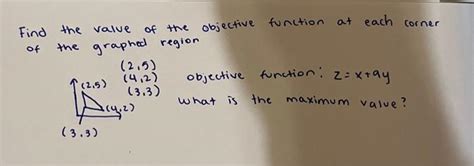 Find the value of the objective function at each corner
of the graphed region
(2,5)
(4,2)
(3,3)
objective function: z=x+9y
what is the maximum value?
(2,5)
(4,2)
(3,3)